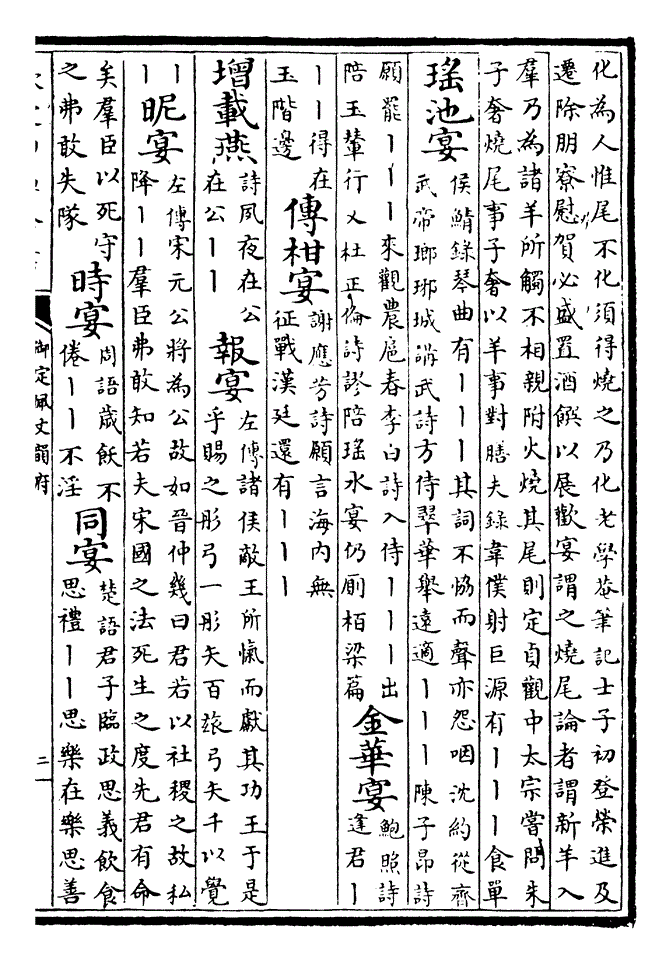 化為人惟尾不化須得燒之乃化老學菴筆記士子初登榮進及
遷除朋寮慰賀必盛置酒饌以展歡宴謂之燒尾論者謂新羊入
羣乃為諸羊所觸不相親附火燒其尾則定貞觀中太宗嘗問朱
子奢燒尾事子奢以羊事對膳夫錄韋僕射巨源有丨丨丨食單
瑤池宴
侯鯖錄琴曲有丨丨丨其詞不恊而聲亦怨咽沈約從齊
武帝瑯琊城講武詩方侍翠華舉遠適丨丨丨陳子昂詩
願罷丨丨丨來觀農扈春李白詩入侍丨丨丨出
陪玉輦行又杜正倫詩謬陪瑤水宴仍厠栢梁篇
金華宴
鮑照詩
逢君丨
丨丨得在
玉階邊
傳柑宴
謝應芳詩願言海内無
征戰漢廷還有丨丨丨
增載燕
詩夙夜在公
在公丨丨
報宴
左傳諸侯敵王所愾而獻其功王于是
乎賜之彤弓一彤矢百玈弓矢千以覺
丨
丨
昵宴
左傳宋元公將為公故如晉仲幾曰君若以社稷之故私
降丨丨羣臣弗敢知若夫宋國之法死生之度先君有命
矣羣臣以死守
之弗敢失隊
時宴
周語歲飫不
倦丨丨不淫
同宴
楚語君子臨政思義飲食
思禮丨丨思樂在樂思善
御定佩文韻府